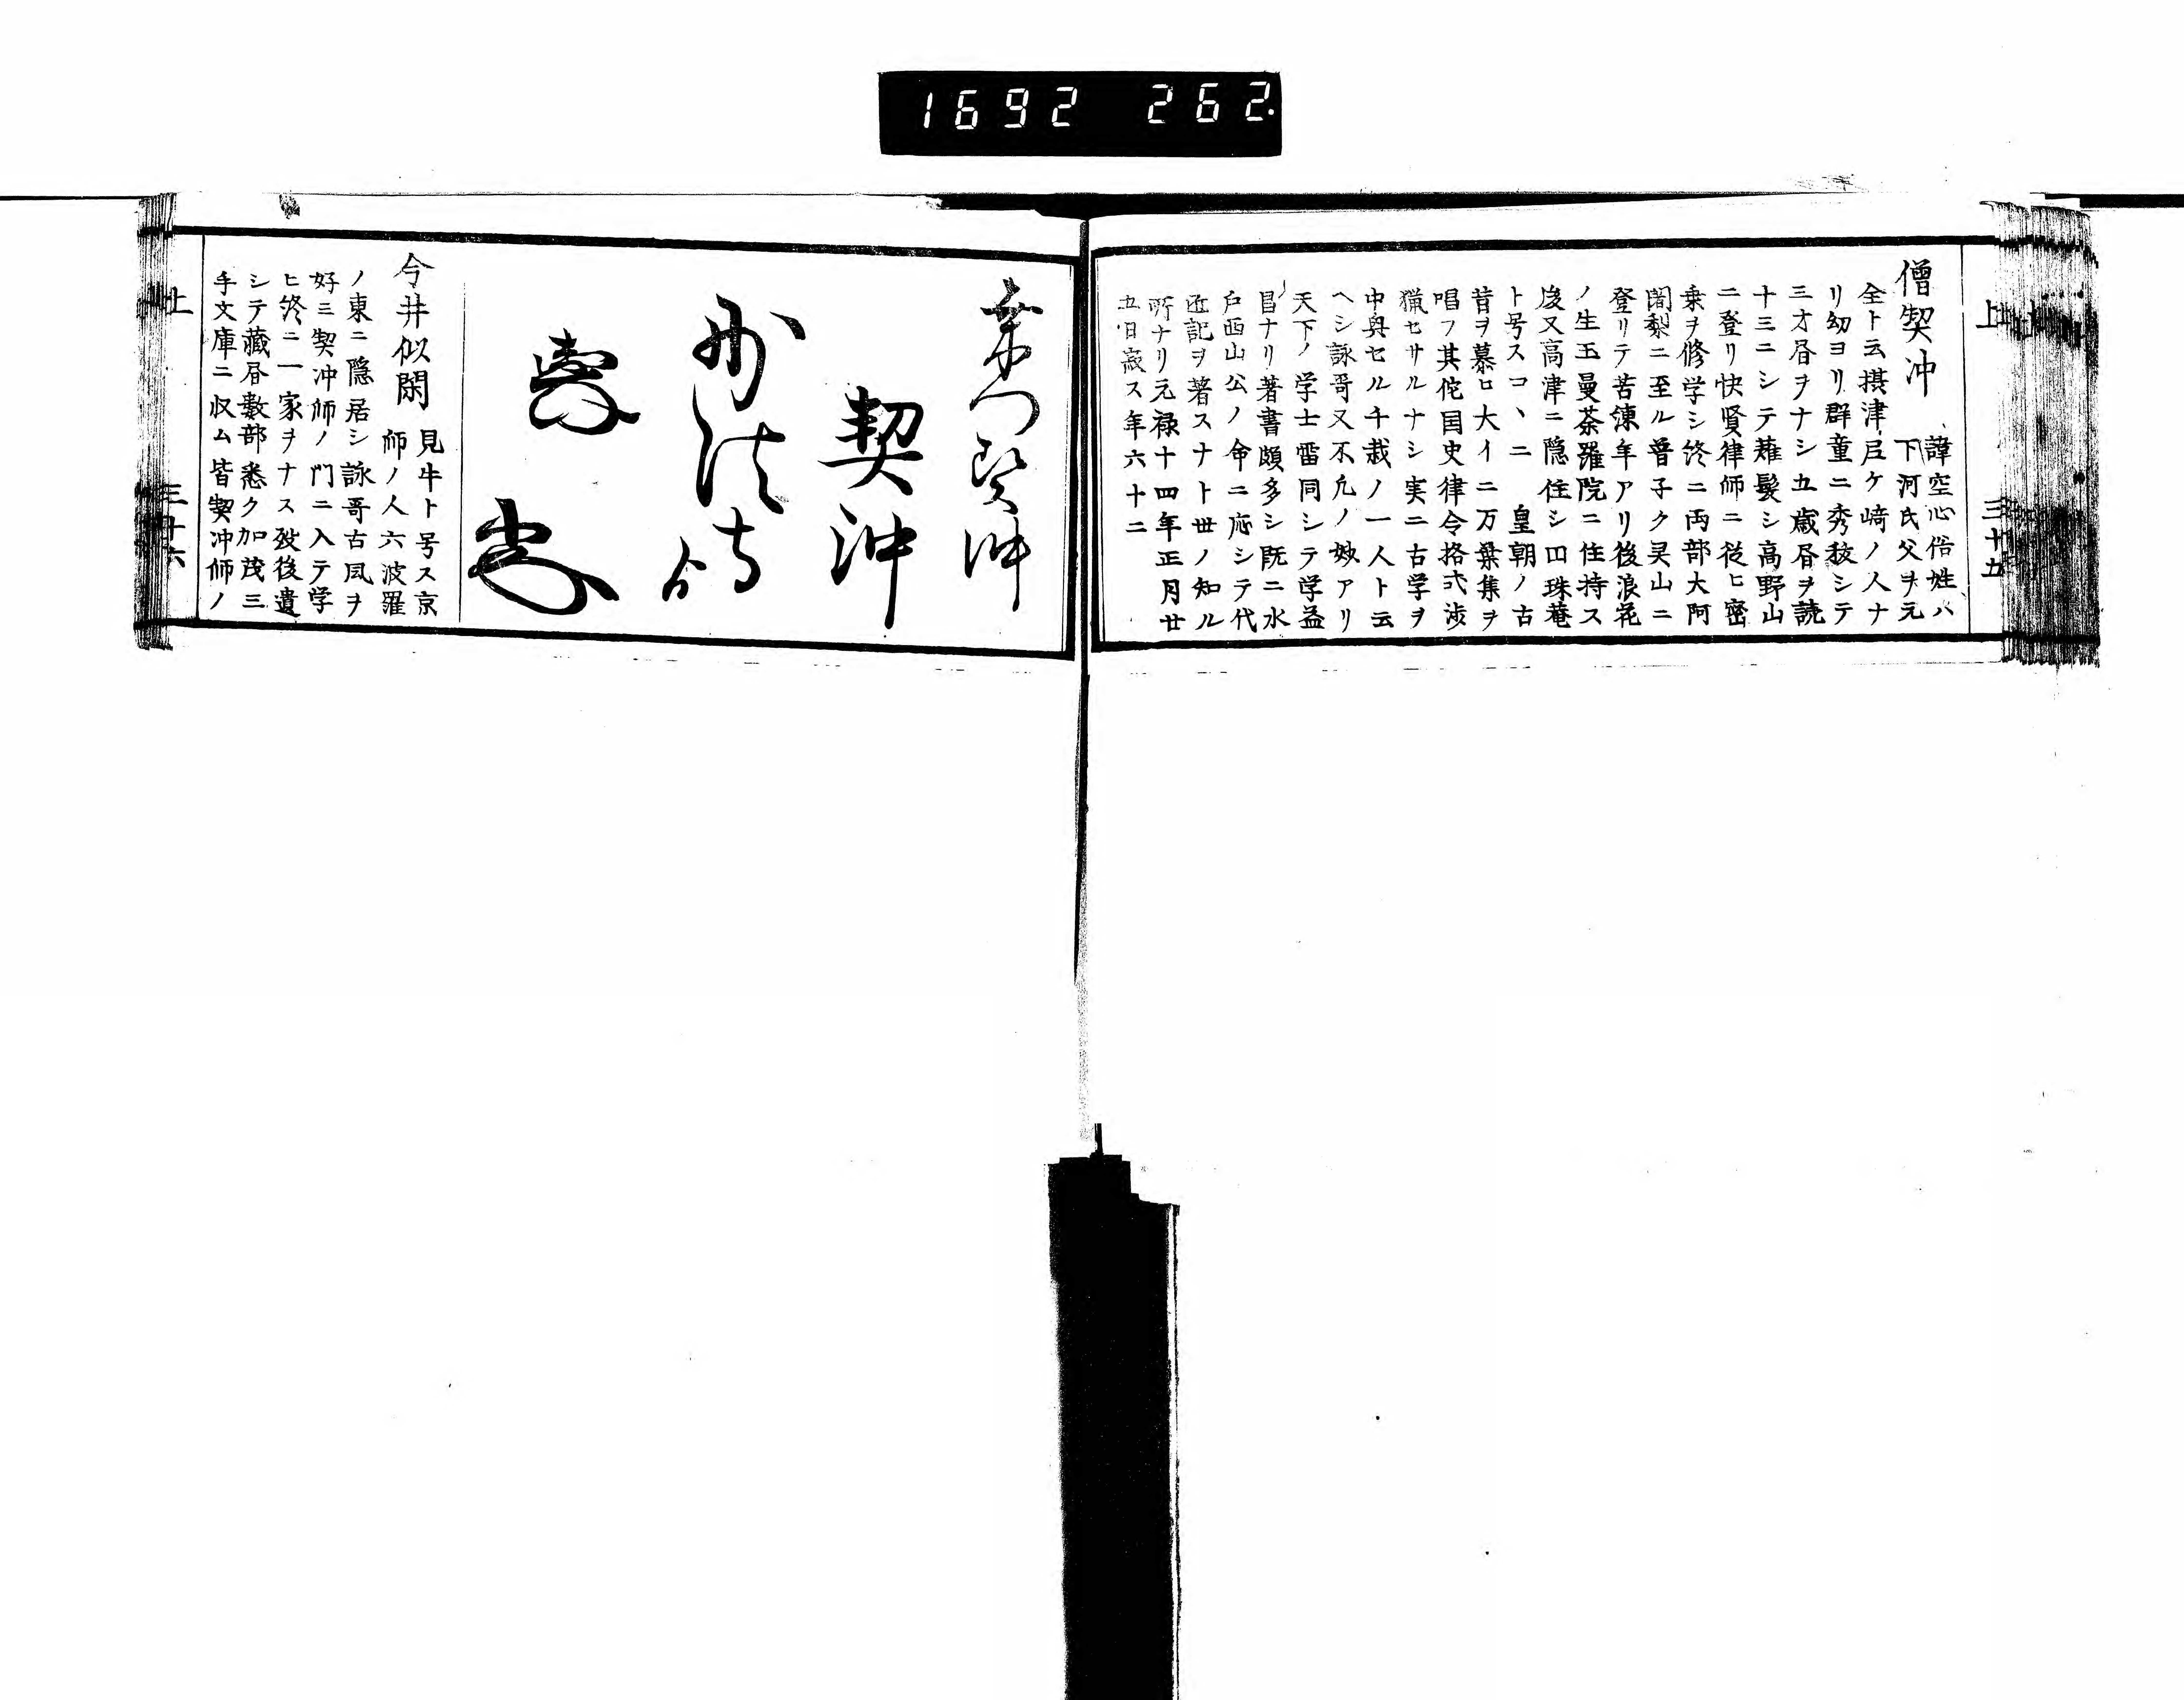 1692 262.
上 三十五
僧契沖
諱空心俗姓ハ
下河氏父ヲ元
全ト云摂津尼ケ﨑ノ人ナ
リ幼ヨリ群童ニ秀敏シテ
三才昼ヲナシ五歳昼ヲ読
十三ニシテ薙髪シ高野山
ニ登リ快賢律師ニ従ヒ密
乗ヲ修学シ終ニ両部大阿
闍梨ニ至ル曽子ク㚑山ニ
登リテ苦練年アリ後浪花
ノ生玉曼荼羅院ニ住持ス
後又高津ニ隠住シ円珠菴
ト号スコヽニ 皇朝ノ古
昔ヲ慕ロ大イニ万葉集ヲ
唱フ其佗国史律令格式渉
猟セサルナシ実ニ古学ヲ
中興セル千歳ノ一人ト云
ヘシ詠哥又不凢ノ妙アリ
天下ノ学士雷同シテ学益
昌ナリ著書頗多シ既ニ水
戸西山公ノ命ニ応シテ代
匠記ヲ著スナト世ノ知ル
所ナリ元禄十四年正月廿
五日寂ス年六十二
契沖
契沖
今井似閑
見牛ト号ス京
師ノ人六波羅
ノ東ニ隠居シ詠哥古風ヲ
好ミ契沖師ノ門ニ入テ学
ヒ終ニ一家ヲナス歿後遺
シテ蔵昼数部悉ク加茂三
手文庫ニ収ム皆契冲師ノ
上 三十六